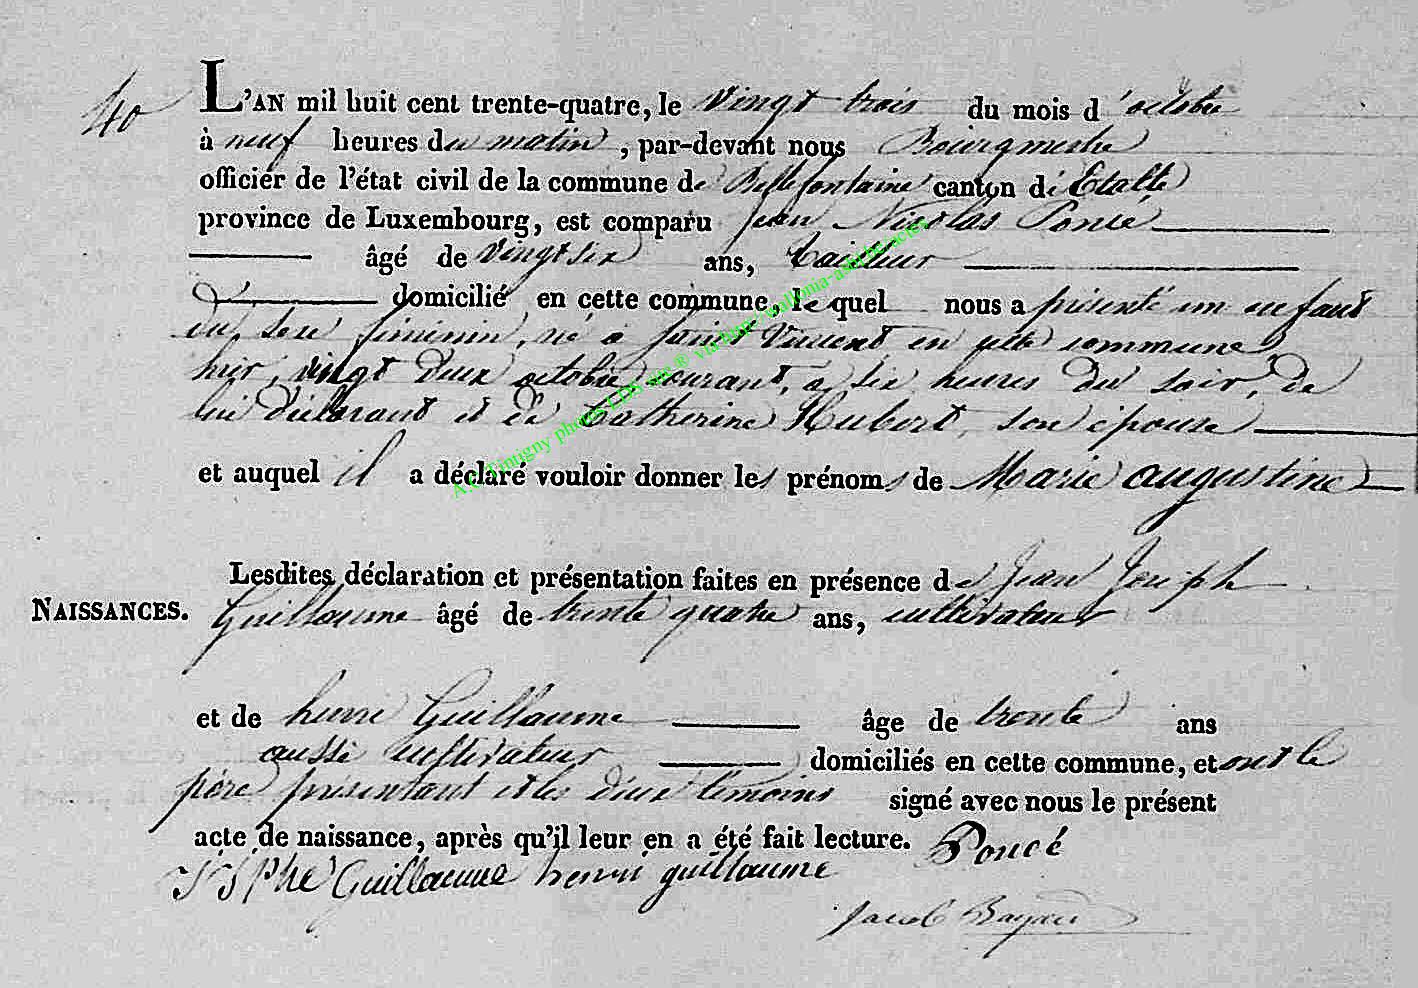 40
L'AN mil huit cent trente-quatre, le vingt trois du mois d'octobre
à neuf heures du matin, par-devant nous Bourgmestre
officier de l'état civil de la commune de Bellefontaine canton d'Etalle
province de Luxembourg, est comparu Jean Nicolas Poncé
âgé de vingt six ans, tailleur
domicilié en cette commune, le quel nous a présenté un enfant
du sexe féminin, né a Saint Vincent en cette commune
hier, vingt deux octobre courant, a six heures du soir, de
lui déclarant et de Catherine Hubert, son épouse
et auquel il a déclaré vouloir donner les prénoms de Marie augustine
Lesdites déclaration et présentation faites en présence de Jean Joseph
NAISSANCES.
Guillaume âgé de trente quatre ans, cultivateur
et de henri Guillaume âge de trente ans
aussi cultivateur domiciliés en cette commune, et ont le
père présentant et les deux témoins signé avec nous le présent
acte de naissance, après qu'il leur en a été fait lecture. Poncé
Guillaume henri guillaume
Jacob
A.C. Tintigny photos LDS site ® via http://wallonia-asbl.be/actes/